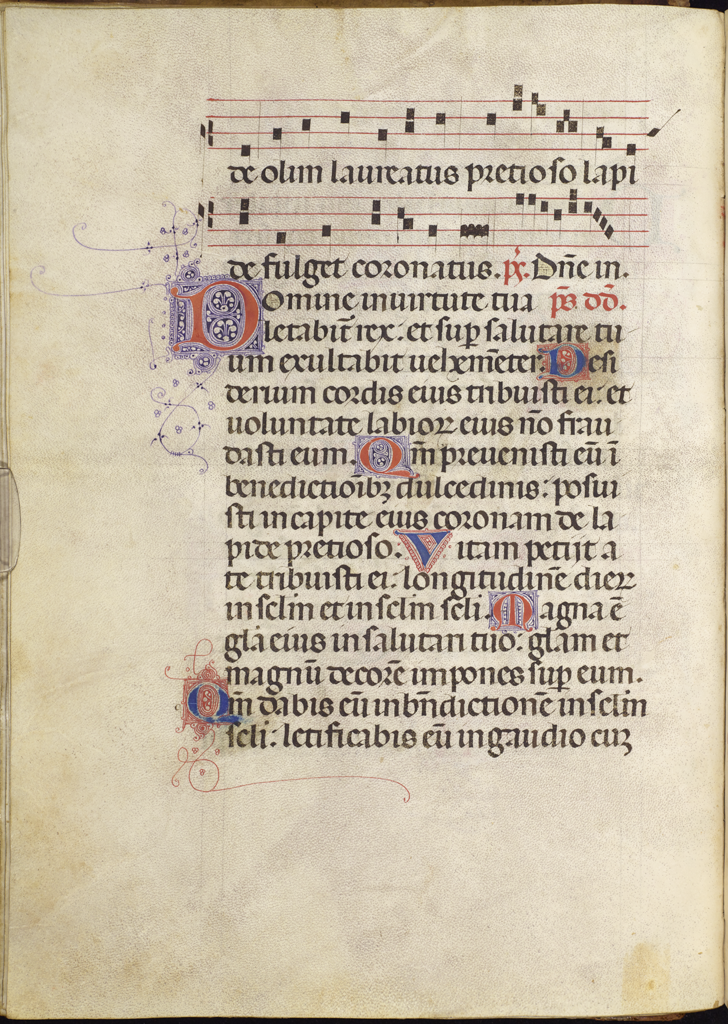 de olim laureatus pretioso lapi
de fulget coronatus. p̃x. Dñe in.
Domine in uirtute tua p̃s dd̃.
letabit̃ rex: et sup̱ salutare tu
um exultabit uehem̃eter. Desi
derium cordis eius tribuisti ei: et
uoluntate labioꝝ eius ñõ frau
dasti eum. Qm̃ preuenisti eũ ĩ
benedictiõibꝫ dulcedinis: posui
sti in capite eius coronam de la
pide pretioso. Vitam petijt a
te tribuisti ei: longitudinẽ dieꝝ
in sclm̃ et in sclm̃ scli. Magna ẽ
glã eius in salutari tuo: glãm et
magnũ decorẽ impones sup̱ eum.
Qm̃ dabis eũ in bñdictionẽ in sclm̃
scli: letificabis eũ in gaudio cuꝫ